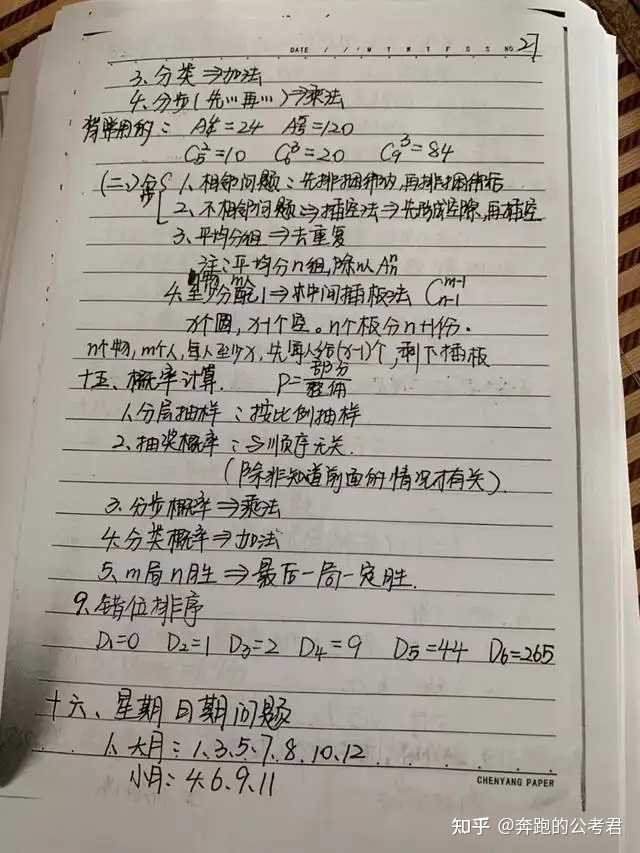 DATE / / M T W T F S S NO. 27
3、分类⇒加法
4、分步(先…再…)⇒乘法
背常用的：A⁴₄=24 A⁵₅=120
C₅²=10 C₆³=20 C₉³=84
(二) 1、相邻问题：先排捆绑内,再排捆绑后
2、不相邻问题⇒插空法⇒先形成空隙,再插空
3、平均分组⇒去重复
注：平均分n组,除以Aⁿₙ
4、至少分配1⇒中间插板法 C^{m-1}_{n-1}
x个圆,x-1个空。n个板分n+1份。
n个物,m个人,每人至少x,先每人给(x-1)个,剩下插板
十五、概率计算. P=部分/整体
1、分层抽样：按比例抽样
2、抽奖概率：与顺序无关.
(除非知道前面的情况才有关).
3、分步概率⇒乘法
4、分类概率⇒加法
5、m局n胜⇒最后一局一定胜.
9、错位排序
D₁=0 D₂=1 D₃=2 D₄=9 D₅=44 D₆=265
十六、星期日期问题
1、大月：1、3、5、7、8、10、12
小月：4、6、9、11
CHENYANG PAPER
知乎 @奔跑的公考君